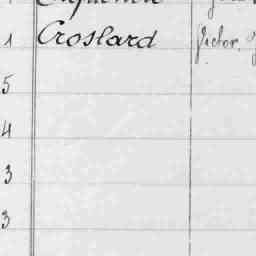 1 Croslard Victor
5
4
3
3